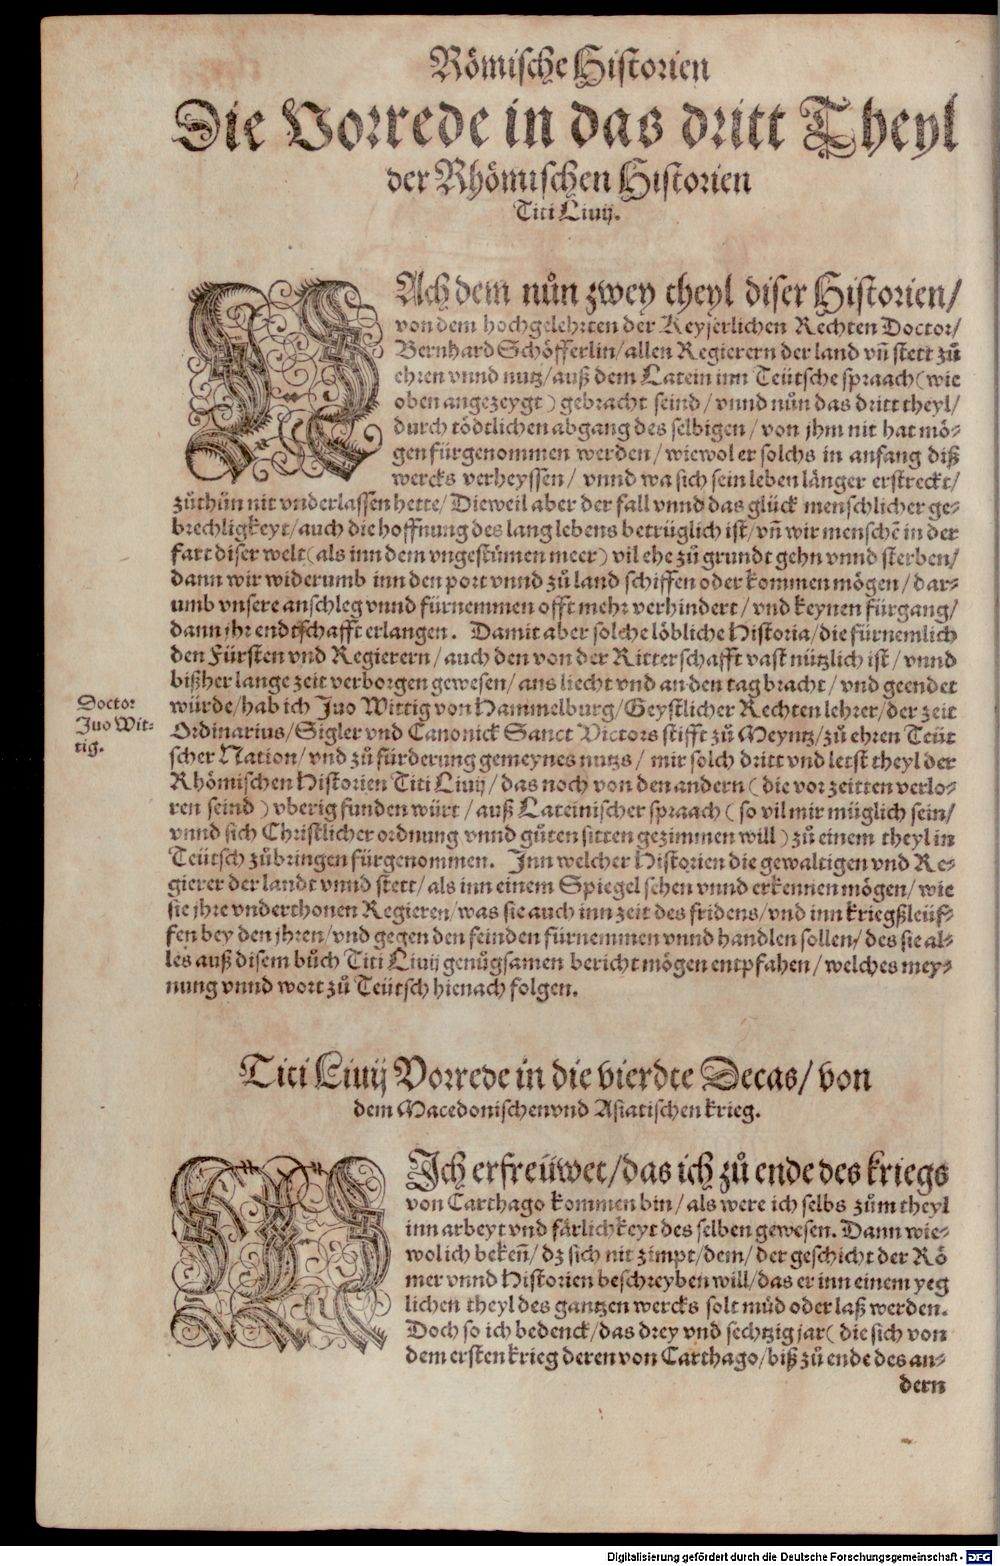 Römische Historien
Die Vorrede in das dritt Theyl
der Rhömischen Historien
Titi Liuij.
NAch dem nůn zwey theyl diser Historien/
von dem hochgelehrten der Keyserlichen Rechten Doctor/
Bernhard Schöfferlin/ allen Regierern der land vn̄ stett zů
ehren vnnd nutz/ auß dem Latein inn Teütsche spraach (wie
oben angezeygt) gebracht seind/ vnnd nůn das dritt theyl/
durch tödtlichen abgang des selbigen/ von jhm nit hat mö-
gen fürgenommen werden/ wiewol er solchs in anfang diß
wercks verheyssen/ vnnd wa sich sein leben länger erstreckt/
zůthůn nit vnderlassen hette/ Dieweil aber der fall vnnd das glück menschlicher ge-
brechligkeyt/ auch die hoffnung des lang lebens betrüglich ist/ vn̄ wir menschē in der
fart diser welt (als inn dem vngestümen meer) vil ehe zů grundt gehn vnnd sterben/
dann wir widerumb inn den port vnnd zů land schiffen oder kommen mögen/ dar-
umb vnsere anschleg vnnd fürnemmen offt mehr verhindert/ vnd keynen fürgang/
dann jhr endtschafft erlangen. Damit aber solche löbliche Historia/ die fürnemlich
den Fürsten vnd Regierern/ auch den von der Ritterschafft vast nützlich ist/ vnnd
bißher lange zeit verborgen gewesen/ ans liecht vnd an den tag bracht/ vnd geendet
würde/ hab ich Juo Wittig von Hammelburg/ Geystlicher Rechten lehrer/ der zeit
Doctor
Juo Wit-
tig.
Ordinarius/ Sigler vnd Canonick Sanct Victors stifft zů Meyntz/ zů ehren Teüt
scher Nation/ vnd zů fürderung gemeynes nutzs/ mir solch dritt vnd letst theyl der
Rhömischen Historien Titi Liuij/ das noch von den andern (die vor zeitten verlo-
ren seind) vberig funden würt/ auß Lateinischer spraach (so vil mir müglich sein/
vnnd sich Christlicher ordnung vnnd gůten sitten gezimmen will) zů einem theyl in
Teütsch zůbringen fürgenommen. Inn welcher Historien die gewaltigen vnd Re-
gierer der landt vnnd stett/ als inn einem Spiegel sehen vnnd erkennen mögen/ wie
sie jhre vnderthonen Regieren/ was sie auch inn zeit des fridens/ vnd inn kriegßleüf-
fen bey den jhren/ vnd gegen den feinden fürnemmen vnnd handlen sollen/ des sie al-
les auß disem bůch Titi Liuij genůgsamen bericht mögen entpfahen/ welches mey-
nung vnnd wort zů Teütsch hienach folgen.
Titi Liuij Vorrede in die vierdte Decas/ von
dem Macedonischen vnd Asiatischen krieg.
MIch erfreüwet/ das ich zů ende des kriegs
von Carthago kommen bin/ als were ich selbs zům theyl
inn arbeyt vnd färlichkeyt des selben gewesen. Dann wie-
wol ich bekeñ/ dz sich nit zimpt/ dem/ der geschicht der Rö
mer vnnd Historien beschreyben will/ das er inn einem yeg
lichen theyl des gantzen wercks solt müd oder laß werden.
Doch so ich bedenck/ das drey vnd sechtzig jar (die sich von
dem ersten krieg deren von Carthago/ biß zů ende des an-
dern
Digitalisierung gefördert durch die Deutsche Forschungsgemeinschaft - DFG